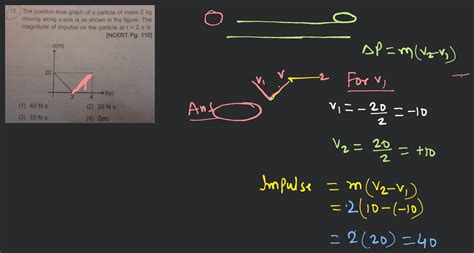 13. The position-time graph of a particle of mass 2 kg
moving along x-axis is as shown in the figure. The
magnitude of impulse on the particle at t = 2 s is
[NCERT Pg. 110]
x(m)
20
2
4
t(s)
(1) 40 N s
(2) 20 N s
(3) 10 N s
(4) Zero
Ans
V₁
V
2
ΔP = m(V₂-V₁)
For V₁
V₁ = -20/2 = -10
V₂ = 20/2 = +10
Impulse = m(V₂-V₁)
= 2(10-(-10)
= 2(20) = 40